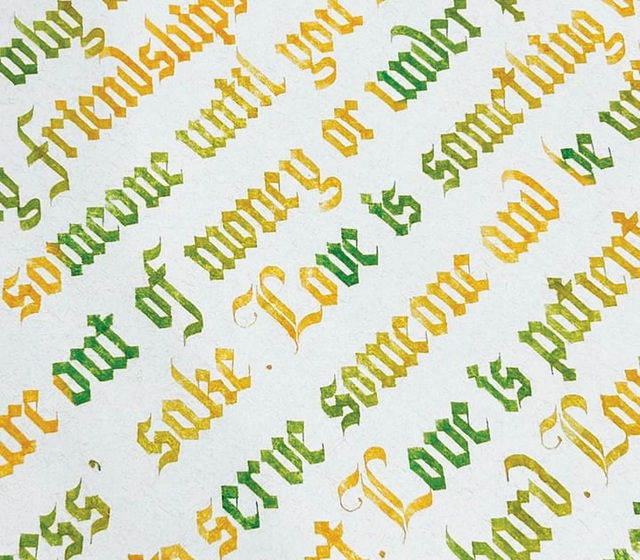 why
friendships
someone until you
out of money or under
sake. Love is something
serve someone and be
Love is patient
hard